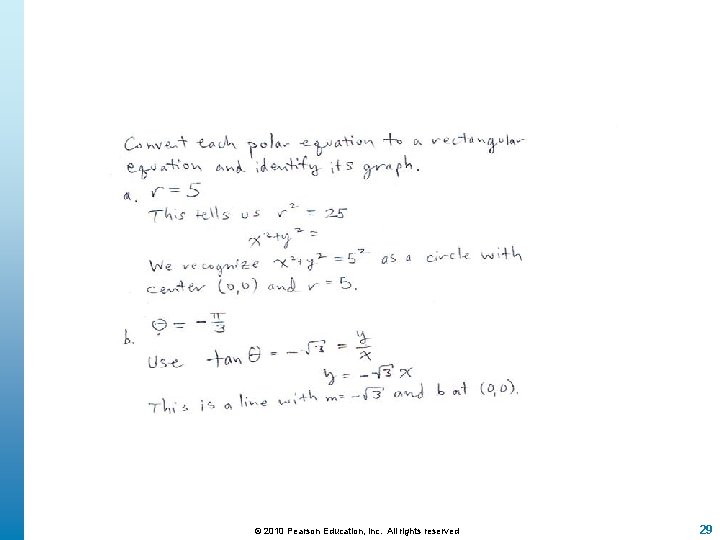 Convert each polar equation to a rectangular
equation and identify its graph.
a. r = 5
This tells us r² = 25
x² + y² =
We recognize x² + y² = 5² as a circle with
center (0,0) and r = 5.
b. θ = -π/3
Use tan θ = -√3 = y/x
y = -√3 x
This is a line with m = -√3 and b at (0,0).
© 2010 Pearson Education, Inc. All rights reserved
29